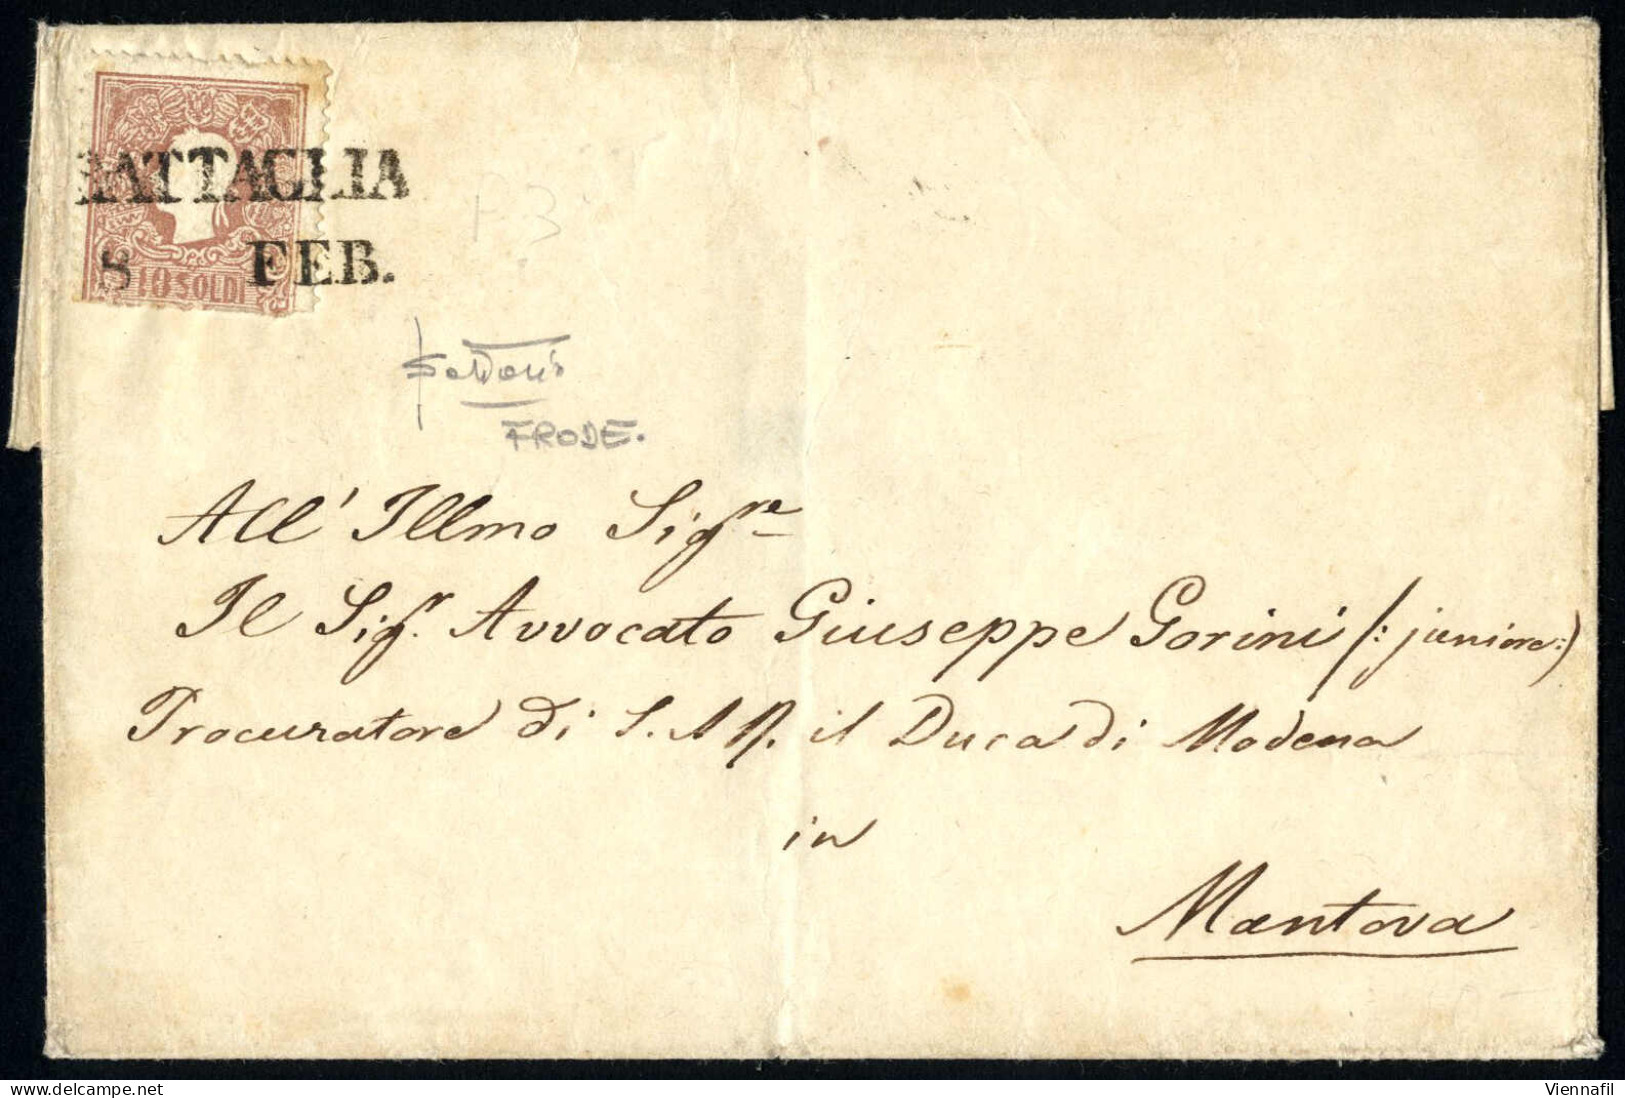 BATTAGLIA
8 FEB.
10 SOLDI
FRODE.
All' Illmo Sigre
Il Sigr. Avvocato Giuseppe Gorini /: juniore :)
Procuratore di S. A. R. il Duca di Modena
in
Mantova
delcampe.net
Viennafil